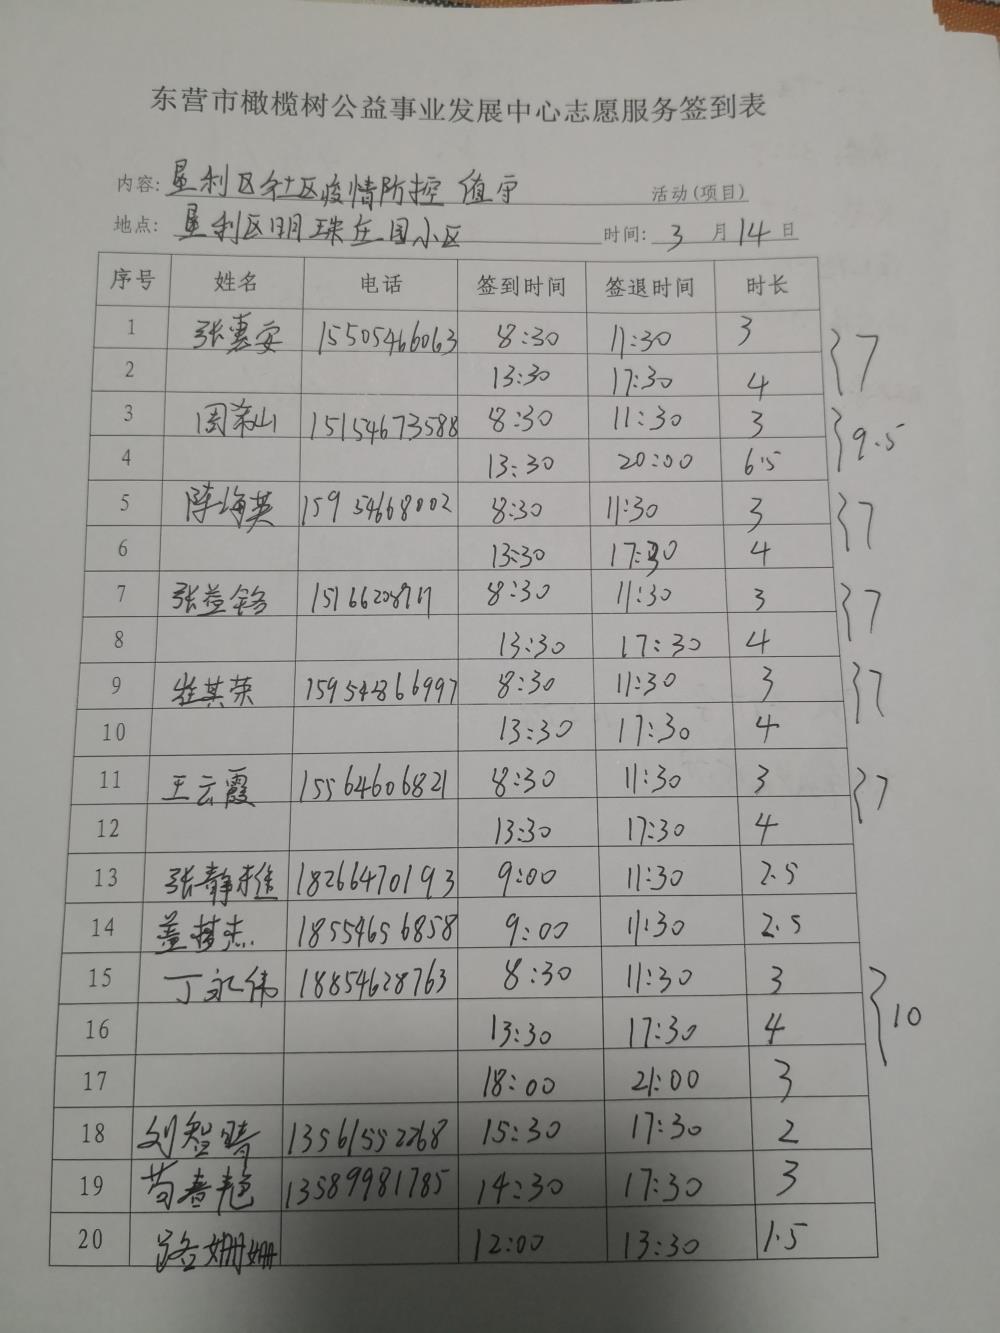 东营市橄榄树公益事业发展中心志愿服务签到表
内容: 垦利区社区疫情防控 值守 活动(项目)
地点: 垦利区明珠庄园小区 时间: 3 月 14 日
序号 姓名 电话 签到时间 签退时间 时长
1 张惠安 15505466063 8:30 11:30 3
2 13:30 17:30 4 7
3 周荣山 15154673588 8:30 11:30 3
4 13:30 20:00 6.5 9.5
5 陈海英 15954668002 8:30 11:30 3
6 13:30 17:30 4 7
7 张益铭 8:30 11:30 3
8 13:30 17:30 4 7
9 崔其荣 8:30 11:30 3
10 13:30 17:30 4 7
11 王云霞 15564606821 8:30 11:30 3
12 13:30 17:30 4 7
13 张静 18266470193 9:00 11:30 2.5
14 18554656858 9:00 11:30 2.5
15 丁永伟 18854628763 8:30 11:30 3
16 13:30 17:30 4 10
17 18:00 21:00 3
18 刘智晴 13561552268 15:30 17:30 2
19 苟春艳 13589981785 14:30 17:30 3
20 路姗姗 12:00 13:30 1.5